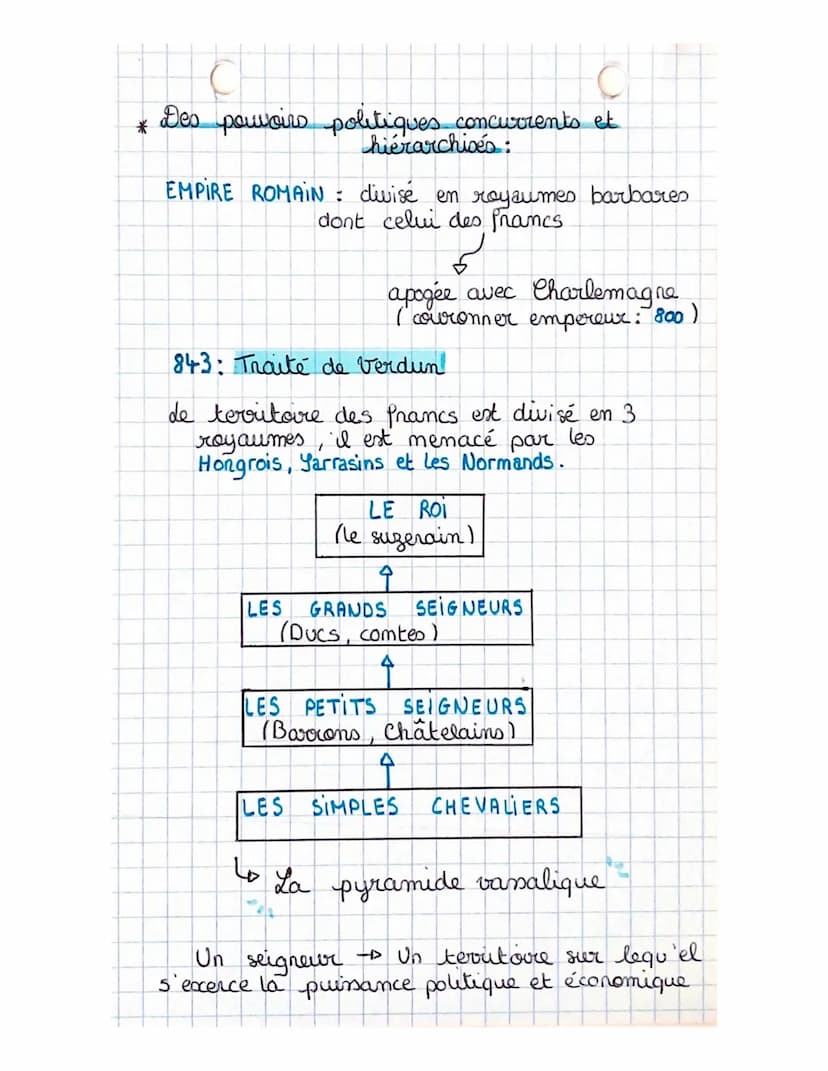 * Des pouvoirs politiques concurrents et
hiérarchisés :
EMPIRE ROMAIN : divisé en royaumes barbares
dont celui des francs
apogée avec Charlemagne
( couronner empereur : 800 )
843 : Traité de Verdun
de territoire des francs est divisé en 3
royaumes, il est menacé par les
Hongrois, Sarrasins et les Normands.
LE ROI
(le suzerain)
LES GRANDS SEIGNEURS
(Ducs, comtes)
LES PETITS SEIGNEURS
(Barons, Châtelains)
LES SIMPLES CHEVALIERS
↳ La pyramide vassalique
Un seigneur → Un territoire sur lequ'el
s'exerce la puissance politique et économique